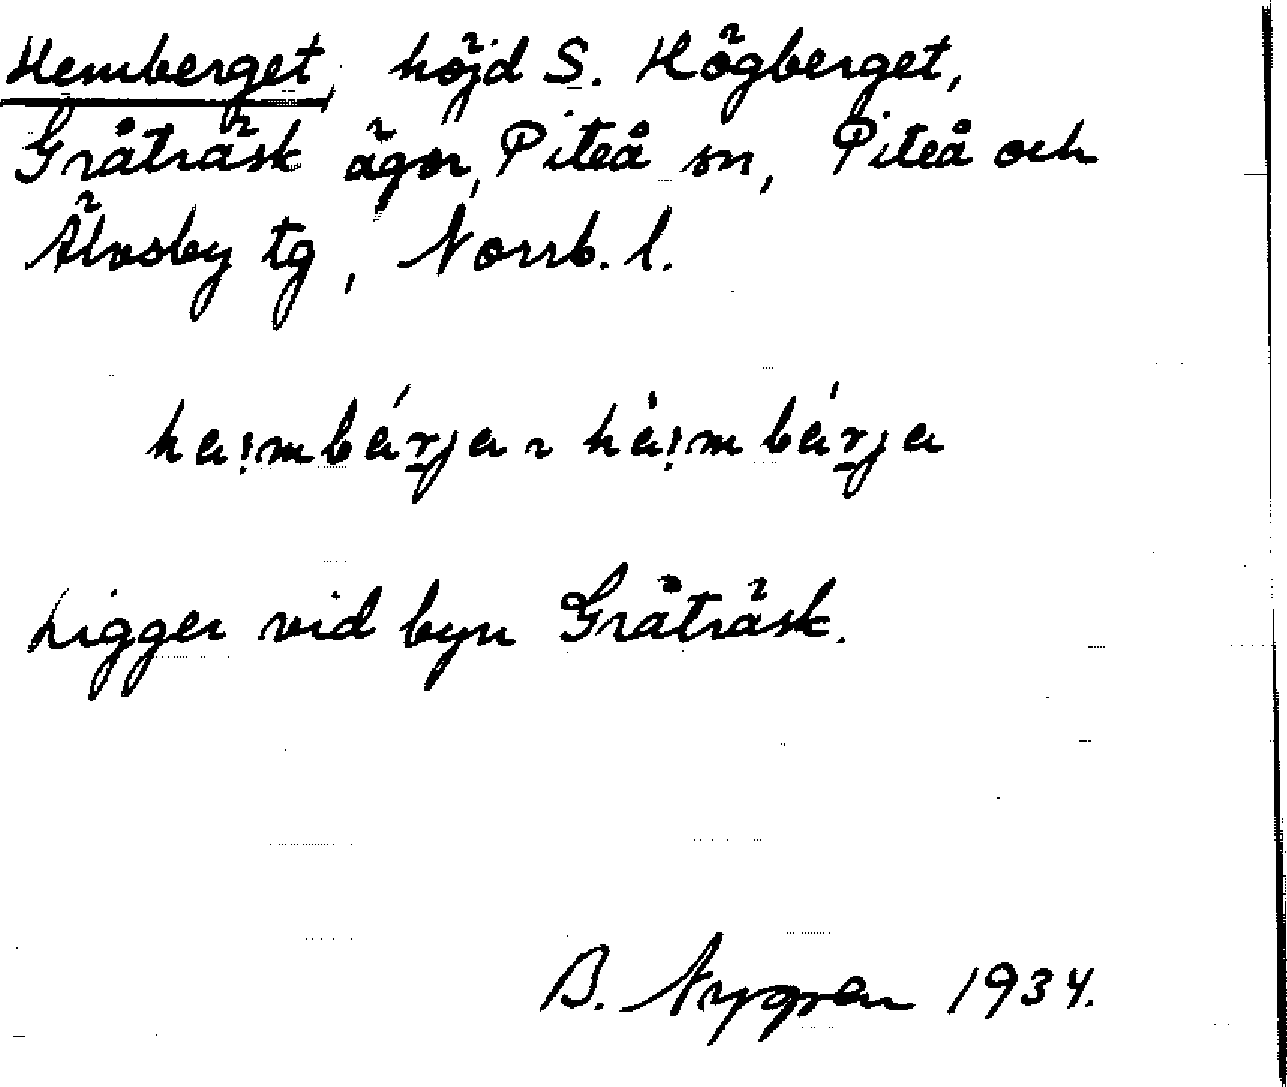 Hemberget, höjd S. Högberget,
Gråträsk ägor, Piteå sn, Piteå och
Älvsby tg, Norrb. l.
haimbárja ~ hàimbárja
Ligger vid byn Gråträsk.
B. Nygren 1934.